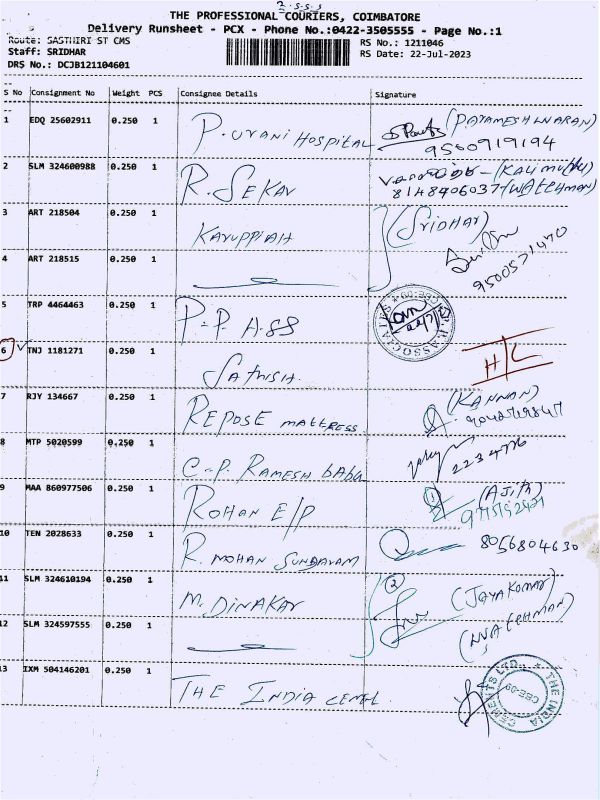 2-S-S-S
THE PROFESSIONAL COURIERS, COIMBATORE
Delivery Runsheet - PCX - Phone No.:0422-3505555 - Page No.:1
Route: SASTHIRI ST CMS
RS No.: 1211046
Staff: SRIDHAR
RS Date: 22-Jul-2023
DRS No.: DCJB121104601
S No Consignment No Weight PCS Consignee Details Signature
1 EDQ 25602911 0.250 1 P. URANI HOSPITAL
9500919194
2 SLM 324600988 0.250 1 R. SEKAR (KALIMUTHU)
8148906037 (WATCHMAN)
3 ART 218504 0.250 1 KARUPPIAH (SRIDHAR)
9500571470
4 ART 218515 0.250 1
5 TRP 4464463 0.250 1 P.P. ASS
6 TNJ 1181271 0.250 1 SATHISH. H/L
7 RJY 134667 0.250 1 REPOSE MATTRESS (KANNAN)
8 MTP 5020599 0.250 1 C.P. RAMESH BABU 2234776
9 MAA 860977506 0.250 1 ROHAN E/P (AJITH)
10 TEN 2028633 0.250 1 R. MOHAN SUNDARAM 8056804630
11 SLM 324610194 0.250 1 M. DINAKAR 2 (JAYAKUMAR)
12 SLM 324597555 0.250 1 (WATCHMAN)
13 IXM 504146201 0.250 1 THE INDIA CEMEL.
THE INDIA CEMENTS LTD., CBE-09